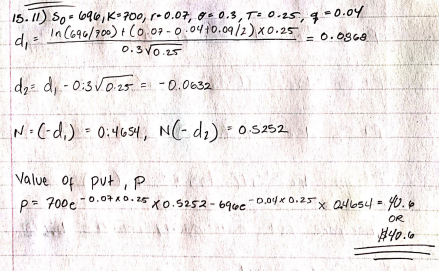 15.11) S₀ = 696, K = 700, r = 0.07, σ = 0.3, T = 0.25, q = 0.04
d₁ = ln(696/700) + (0.07 - 0.04 + 0.09/2) × 0.25 / 0.3√0.25 = 0.0868
d₂ = d₁ - 0.3√0.25 = -0.0632
N = (-d₁) = 0.4654, N(-d₂) = 0.5252
Value of put, p
p = 700e^-0.07×0.25 × 0.5252 - 696e^-0.04×0.25 × 0.4654 = 40.6
OR
$40.6